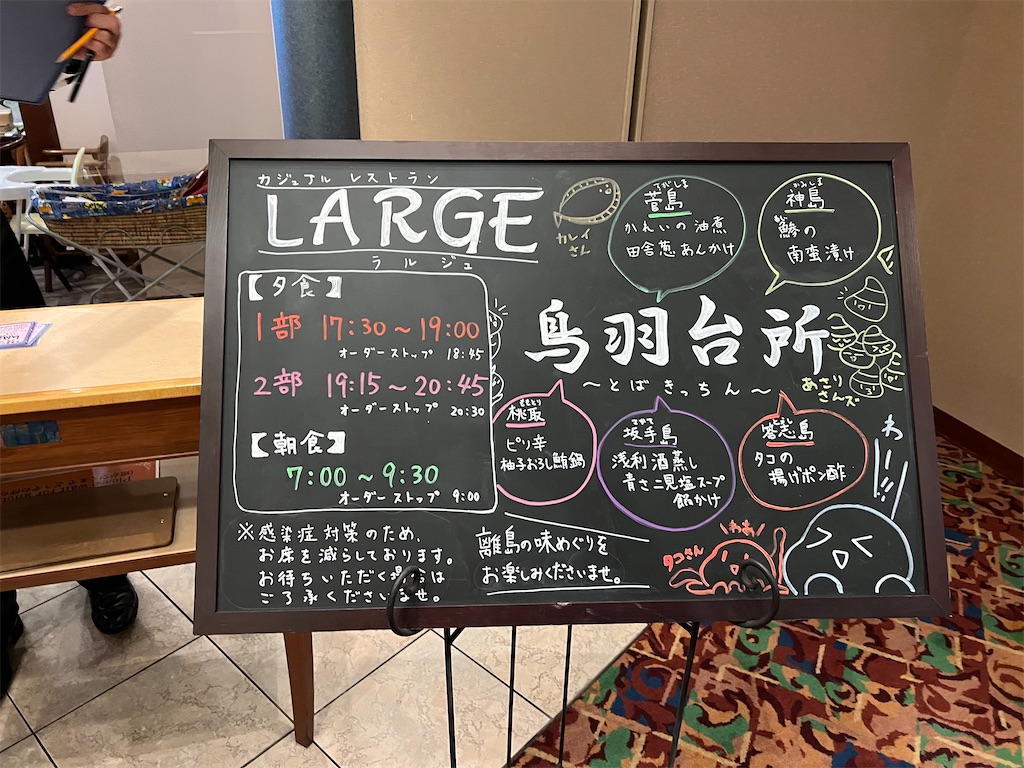 カジュアル レストラン
LARGE
ラルジュ
【夕食】
1部 17:30～19:00
オーダーストップ 18:45
2部 19:15～20:45
オーダーストップ 20:30
【朝食】
7:00～9:30
オーダーストップ 9:00
※感染症対策のため、
お席を減らしております。
お待ちいただく場合は
ご了承くださいませ。
カレイ
さん
すがしま
菅島
かれいの油煮
田舎葱あんかけ
かみしま
神島
鯵の
南蛮漬け
鳥羽台所
～とばきっちん～
あさり
さんズ
ももとり
桃取
ピリ辛
柚子おろし鮪鍋
坂手島
浅利酒蒸し
青さ二見塩スープ
餡かけ
答志島
タコの
揚げポン酢
わーっ!!
離島の味めぐりを
お楽しみくださいませ。
タコさん
わあ